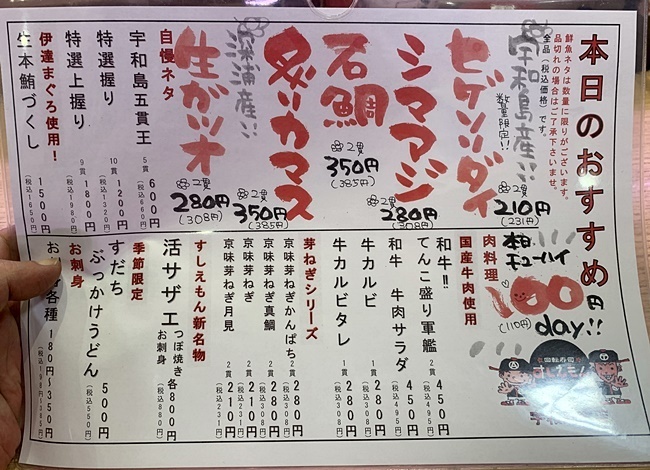 本日のおすすめ
鮮魚ネタは数量に限りがございます。
品切れの場合はご了承下さいませ。
全品(税込価格)です。
宇和島産!!!
数量限定!!
ヒゲソリダイ
2貫
210円
(231円)
シマアジ
2貫
280円
(308円)
石鯛
2貫
350円
(385円)
炙りカマス
2貫
350円
(385円)
深浦産!!!
生ガツオ
2貫
280円
(308円)
自慢ネタ
宇和島五貫王 5貫 600円
(税込660円)
特選握り 10貫 1200円
(税込1320円)
特選上握り 9貫 1800円
(税込1980円)
伊達まぐろ使用!
生本鮪づくし 1500円
(税込1650円)
本日
チューハイ
100円
(110円)
day!!
肉料理
国産牛肉使用
和牛!!
てんこ盛り軍艦 2貫 450円
(税込495円)
和牛 牛肉サラダ 450円
(税込495円)
牛カルビ 1貫 280円
(税込308円)
牛カルビタレ 1貫 280円
(税込308円)
芽ねぎシリーズ
京味芽ねぎかんぱち 2貫 280円
(税込308円)
京味芽ねぎ真鯛 2貫 280円
(税込308円)
京味芽ねぎ 2貫 210円
(税込231円)
京味芽ねぎ月見 2貫 210円
(税込231円)
すしえもん新名物
活サザエ つぼ焼き お刺身 各800円
(税込880円)
季節限定
すだち
ぶっかけうどん 500円
(税込550円)
お刺身
各種 180円~350円
回転寿司
すしえもん